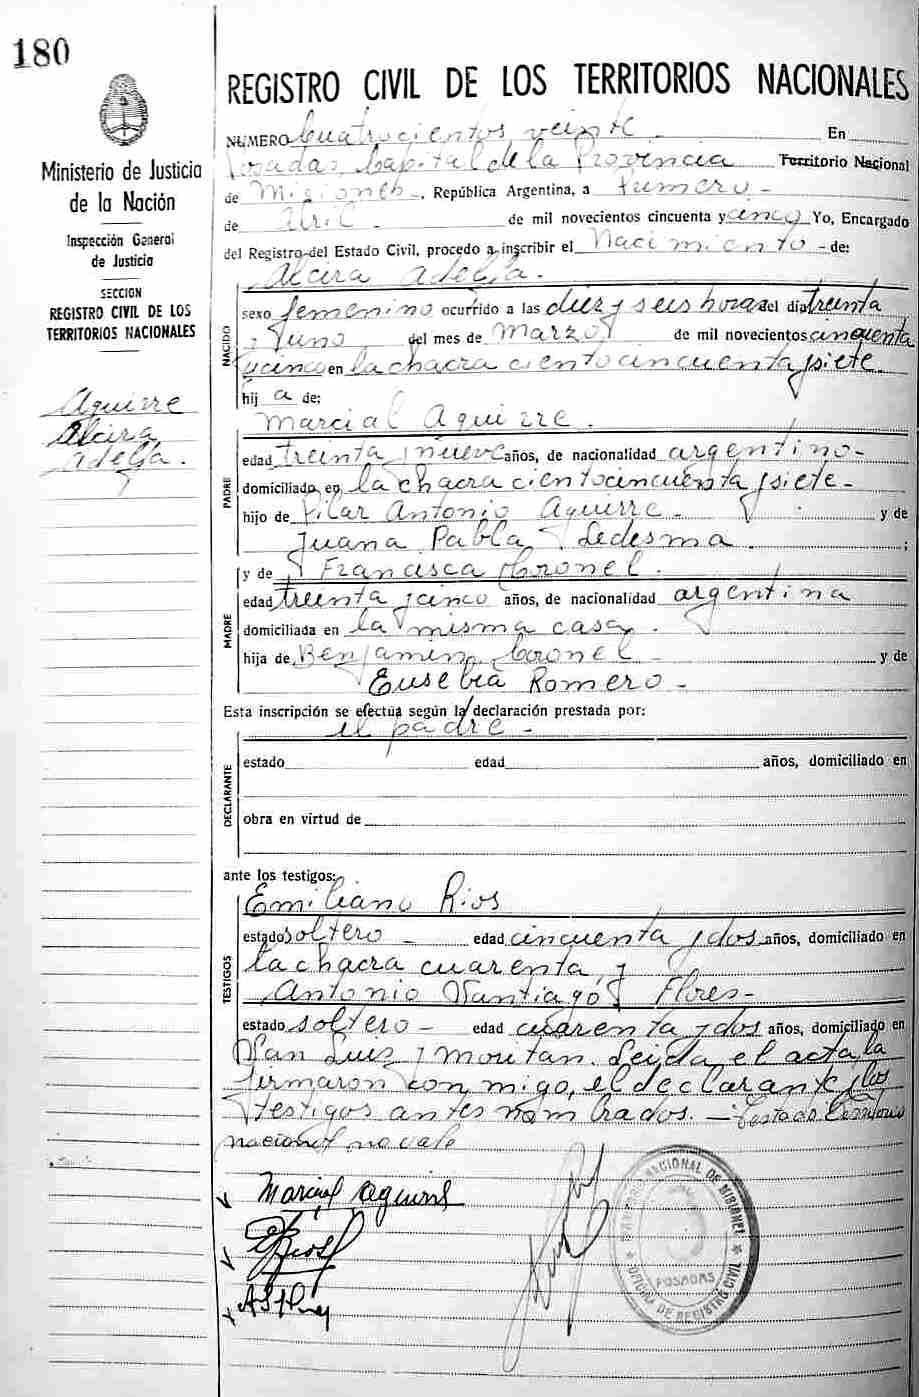 180
Ministerio de Justicia
de la Nación
Inspección General
de Justicia
SECCION
REGISTRO CIVIL DE LOS
TERRITORIOS NACIONALES
Aguirre
Alcira
Adelfa.
REGISTRO CIVIL DE LOS TERRITORIOS NACIONALES
NUMERO Cuatrocientos veinte - En
Posadas, Capital de la Provincia Territorio Nacional
de Misiones -, República Argentina, a Primero -
de Abril - de mil novecientos cincuenta y cinco Yo, Encargado
del Registro del Estado Civil, procedo a inscribir el Nacimiento - de:
Alcira Adelfa.
NACIDO
sexo femenino ocurrido a las diez y seis horas del día treinta
y uno del mes de Marzo de mil novecientos cincuenta
y cinco en la chacra ciento cincuenta y siete
hij a de:
Marcial Aguirre.
PADRE
edad treinta y nueve años, de nacionalidad argentino-
domiciliado en la chacra ciento cincuenta y siete-
hijo de Pilar Antonio Aguirre - y de
Juana Pabla Ledesma. ;
y de Francisca Coronel.
MADRE
edad treinta y cinco años, de nacionalidad argentina
domiciliada en la misma casa.
hija de Benjamin Coronel - y de
Eusebia Romero -
Esta inscripción se efectúa según la declaración prestada por:
el padre -
DECLARANTE
estado edad años, domiciliado en
obra en virtud de
ante los testigos:
Emiliano Rios
TESTIGOS
estado soltero - edad cincuenta y dos años, domiciliado en
la chacra cuarenta, y
Antonio Santiago Flores-
estado soltero - edad cuarenta y dos años, domiciliado en
San Luis y Moritan. Leida el acta la
firmaron con migo, el declarante y los
testigos antes nombrados. - Testado Territorio
nacional no vale
Marcial Aguirre
E Rios
TERRITORIO NACIONAL DE MISIONES
POSADAS
OFICINA DE REGISTRO CIVIL